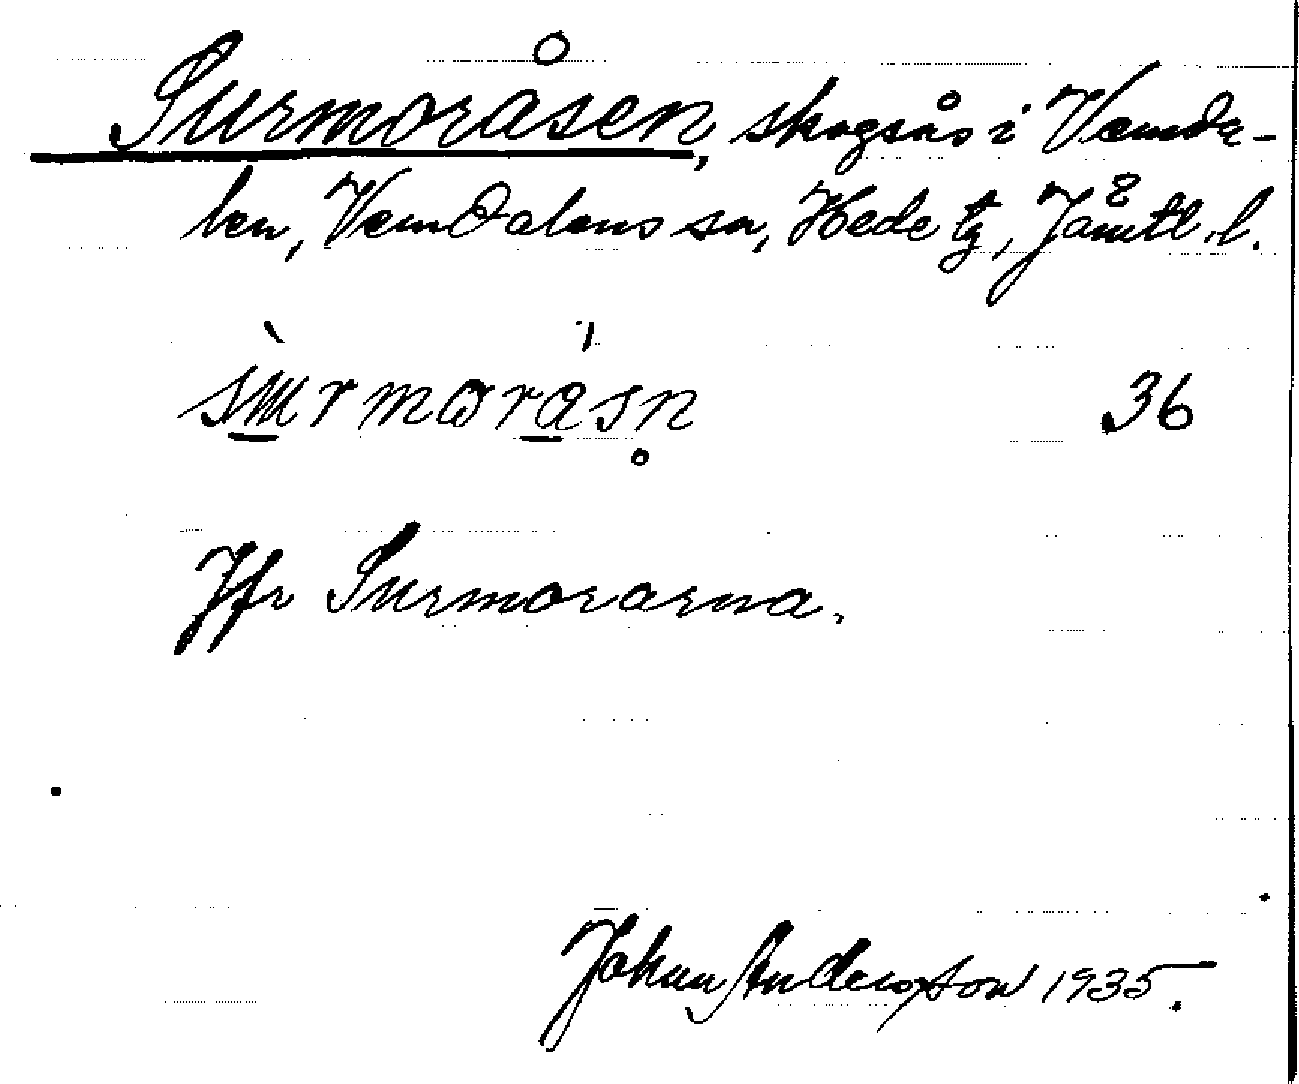 Surmoråsen, skogsås i Vemda-
len, Vemdalens sn, Hede tg, Jämtl. l.
36
Jfr Surmorarna.
Johan Andersson 1935.